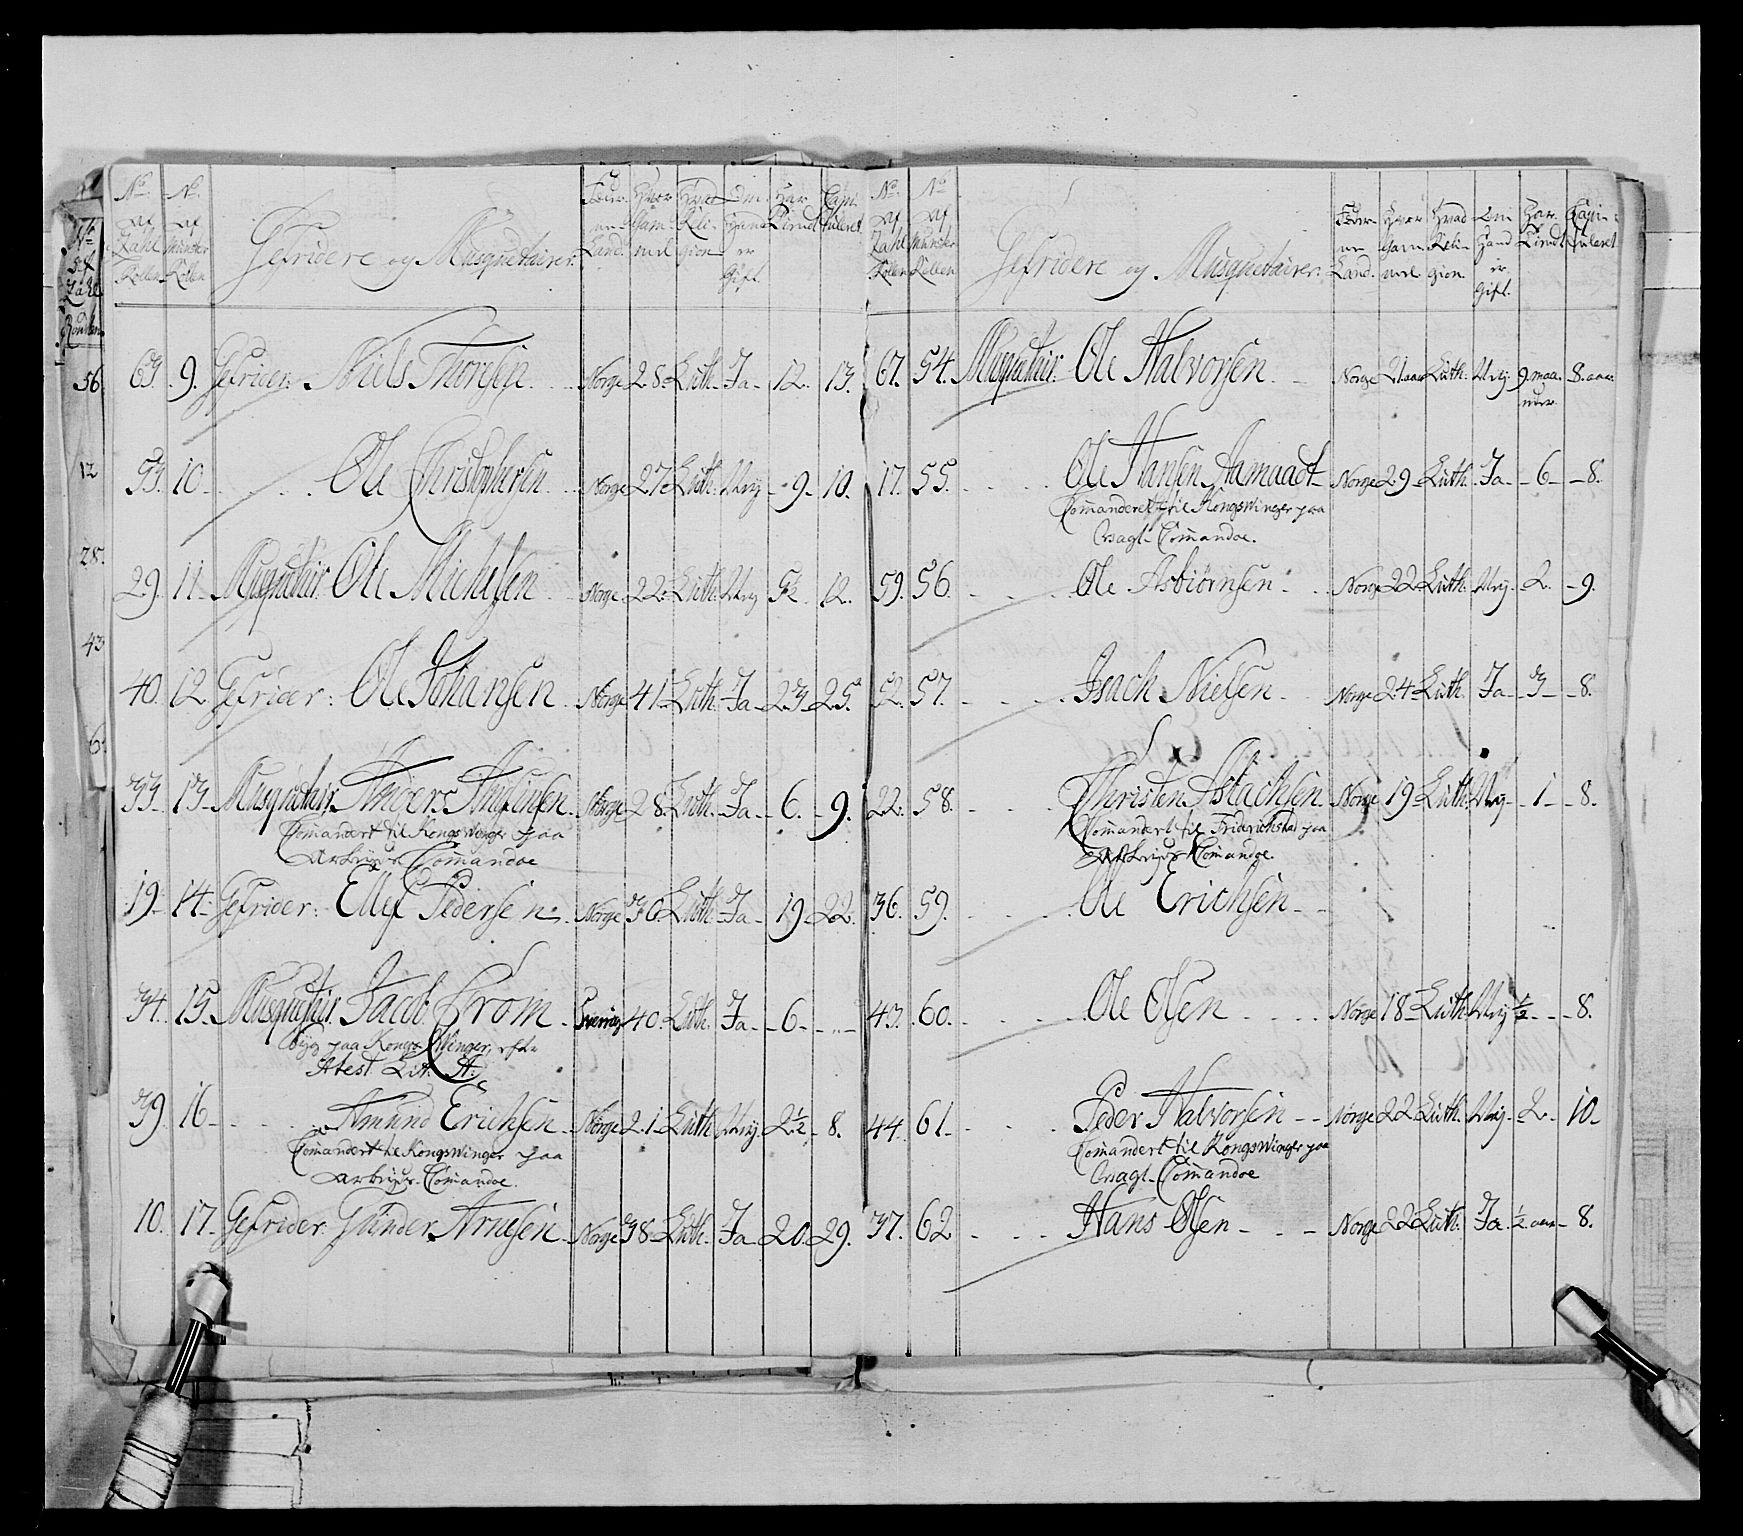 No. af Zahl Rollen
No. af Munster Rollen
Gefridere og Musquetairer.
Four un Land.
Hvor Gam mel
Hvad Reli- gion
Om Hand er Gift.
Har Tiendt
Capi- tuleret
63. 9. Gefrider: Niels Thoresen. Norge 28. Luth. Ja 12. 13.
53. 10 Ole Christophersen Norge 27 Luth. Ugij 9 10.
29. 11 Musquetair Ole Michelsen Norge 22 Luth. Ugij 5½ 12.
40. 12 Gefrider: Ole Johansen Norge 41 Luth. Ja 23 25.
33 13 Musquetair Anders Amundsen Norge 28. Luth. Ja 6. 9.
Comandert til KongsWinger paa
Arbeyds Comandoe
19 14 Gefrider: Ellef Pedersen Norge 36 Luth. Ja 19 22.
34. 15. Musquetair Jacob Strøm Sverrig 40. Luth. Ja 6
Syg paa Kongs Winger, efter
Atest Lit. A.
39. 16 Amund Erichsen Norge 21 Luth. Ugij 2½ 8.
Comandert til KongsWinger paa
Arbeyds Comandoe.
10. 17. Gefrider Gunder Arnesen Norge 38 Luth. Ja 20. 29.
No. af Zahl Rollen
No. af Munster Rollen
Gefridere og Musquetairer.
Four un Land.
Hvor Gam mel
Hvad Reli- gion
Om Hand er Gift.
Har Tiendt
Capi- tuleret
61. 54. Musquetair Ole Halvorsen Norge 21. aar Luth. Ugij 9. maa- neder 8. aar.
17. 55. Ole Hansen Aamaadt Norge 29 Luth. Ja 6 8.
Comanderet til KongsWinger paa
Vagt Comandoe.
59. 56. Ole Asbiørnsen Norge 22 Luth. Ugij 2. 9.
52. 57. Isach Nielsen Norge 24 Luth. Ja 3 8.
22. 58. Christen Astachsen Norge 19 Luth. Ugij 1 8.
Comandert til Friderichstad paa
Arbeyds Comandoe.
36. 59. Ole Erichsen
43. 60. Ole Olsen Norge 18 Luth. Ugij ½ 8.
44. 61. Peder Halvorsen Norge 22 Luth. Ugij 2 10
Comandert til KongsWinger paa
Vagt Comandoe
37. 62 Hans Olsen Norge 22 Luth. Ja ½ aar 8.
56.
12
28.
43